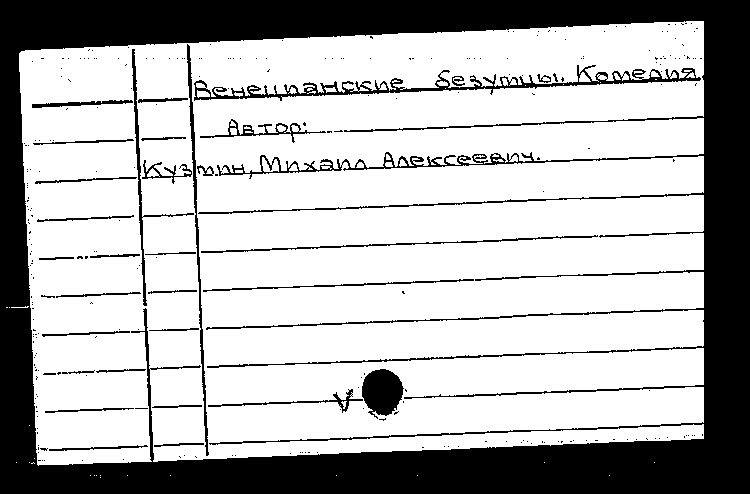 Венецианские безумцы. Комедия.
Автор:
Кузмин, Михаил Алексеевич.
V